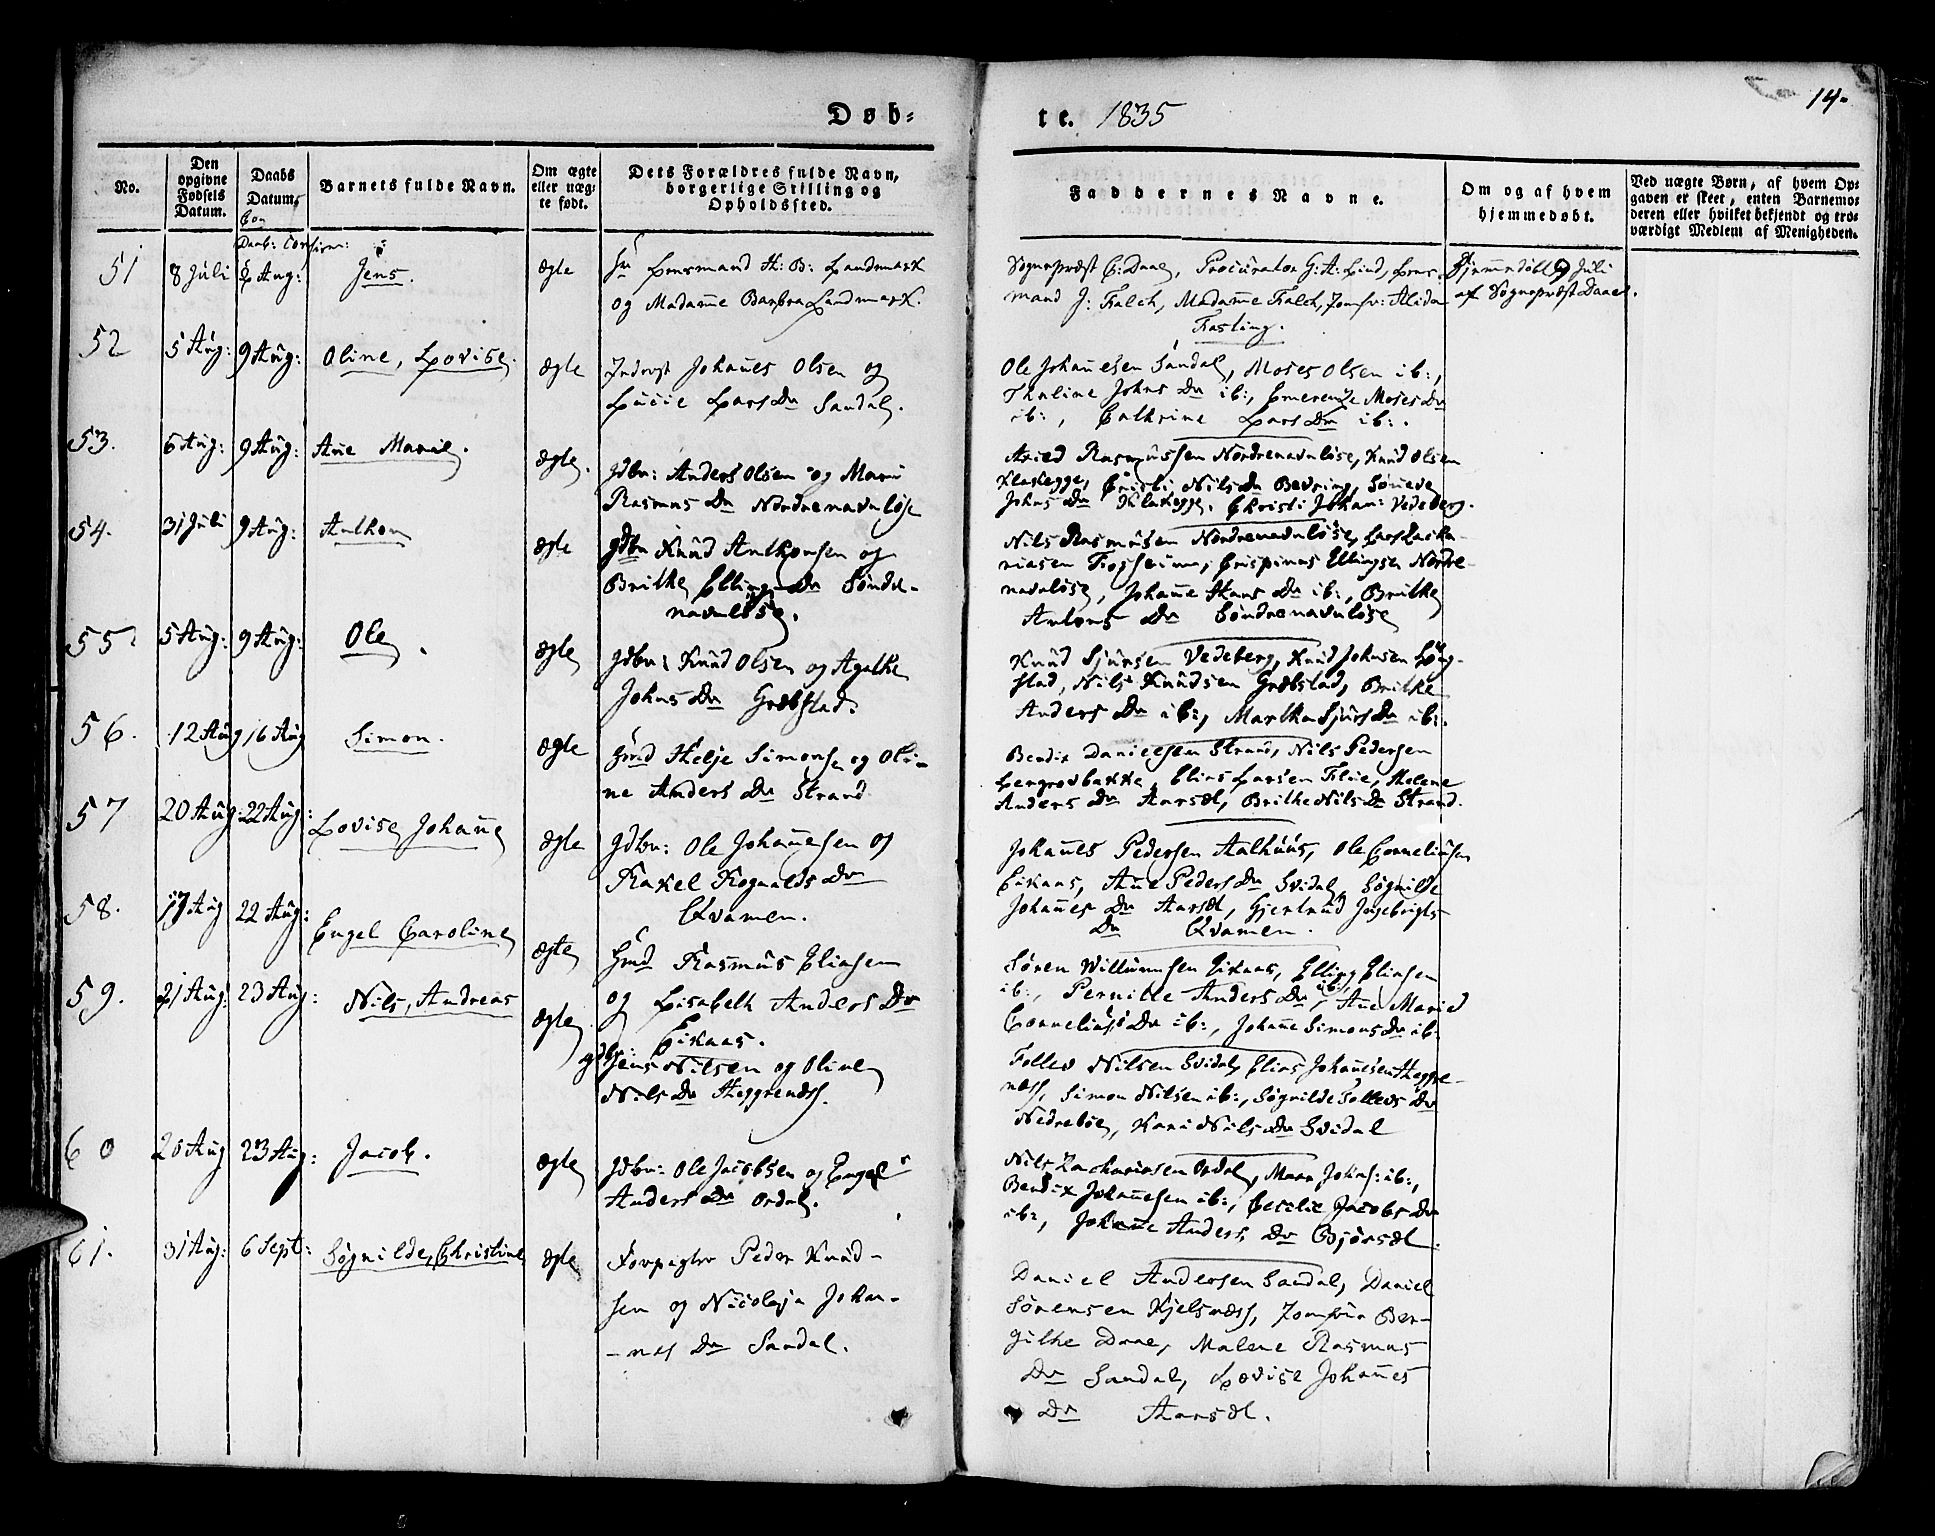 Døb-
te. 1835
14.
No.
Den opgivne Fødsels Datum.
Daabs Datum.
Barnets fulde Navn.
Om ægte eller uægte født.
Dets Forældres fulde Navn, borgerlige Stilling og Opholdssted.
Faddernes Navne.
Om og af hvem hjemmedøbt.
Ved uægte Børn, af hvem Opgaven er skeet, enten Barnemoderen eller hvilket bekjendt og troværdigt Medlem af Menigheden.
51 8 Juli 2 Aug: Jens. ægte Hr Lensmand H: B: Landmark
og Madame Barbra Landmark.
Sognepræst C: Daae, Procurator G: A: Lind, Lens-
mand J: Falch, Madame Falch, Jomfr: Alida
Fasting.
Hjemmedøbt 9 Juli
af Sognepræst Daae.
52 5 Aug: 9 Aug: Oline, Lovise. ægte Inderst Johannes Olsen og
Lucie Lars Dr Sandal.
Ole Johannesen Sandal, Moses Olsen ib:,
Thaline Johns Dr ib:, Emerenze Moses Dr
ib:, Cathrine Lars Dr ib:.
53. 6 Aug: 9 Aug: Ane Marie. ægte. Gdbr: Anders Olsen og Mari
Rasmus Dr Nordrenavnløse
Rasmussen Nordrenavnløse, Knud Olsen
Klakegge, Nils Dr Bevring,
Johns Dr Klakegge, Christi Johan: Vedeberg.
54. 31 Juli 9 Aug: Anthon ægte Gdbr Knud Anthonsen og
Brithe Ellings Dr Søndre-
navnløse.
Nils Rasmusen Nordrenavnløse, Lars Zacha-
riasen Fosheim, Crispinus Ellingsen Nordre-
navnløse, Johanne Hans Dr ib:, Brithe
Antons Dr Søndrenavnløse
55. 5 Aug: 9 Aug: Ole. ægte Gdbr: Knud Olsen og Agathe
Johns Dr Grebstad.
Knud Sjursen Vedeberg, Knud Johnsen Løng-
stad, Nils Knudsen Grebstad, Brithe
Anders Dr ib:, Martha Sjurs Dr ib:.
56. 12 Aug 16 Aug Simon. ægte Gmd Helje Simonsen og Oli-
ne Anders Dr Strand
Bendix Danielsen Strand, Nils Pedersen
Lergrovbakke, Elias Larsen Flue, Helene
Anders Dr Aarsæt, Brithe Nils Dr Strand.
57 20 Aug: 22 Aug: Lovise Johanne ægte Gdbr: Ole Johannesen og
Rakel Rognalds Dr
Qvamen.
Johannes Pedersen Aalhuus, Ole Corneliusen
Eikaas, Ane Peders Dr Svidal, Søgnilde
Johannes Dr Aarsæt, Gjertrud Ingebrigts
Dr Qvamen.
58. 17 Aug 22 Aug: Engel Caroline ægte Gmd Rasmus Eliasen
og Lisabeth Anders Dr
Eikaas.
Søren Willumsen Eikaas, Elling Eliasen
ib:, Pernille Anders Dr ib:, Ane Marie
Cornelius Dr ib:, Johanne Simons Dr ib:
59. 21 Aug: 23 Aug: Nils, Andreas ægte Gdbr: Jens Nilsen og Oline
Nils Dr Heggrenæss.
Tollev Nilsen Svidal, Elias Johannesen Heggre-
næss, Simon Nilsen ib:, Søgnilde Tollevs Dr
Nedrebøe, Kari Nils Dr Svidal
60 20 Aug 23 Aug: Jacob. ægte Gdbr: Ole Jacobsen og Engel
Anders Dr Ordal.
Nils Zachariasen Ordal, Johns: ib:,
Bendix Johannesen ib:, Cecilie Jacobs Dr
ib:, Johanne Anders Dr Bjørsæt.
61. 31 Aug: 6 Sept: Søgnilde, Christine ægte Forpagter Peder Knud-
sen og Nicoleja Johan-
-nes Dr Sandal.
Daniel Andersen Sandal, Daniel
Sørensen Kjelsnæss, Jomfru Ber-
githe Daae, Malene Rasmus
Dr Sandal, Lovise Johannes
Dr Aarsæt.